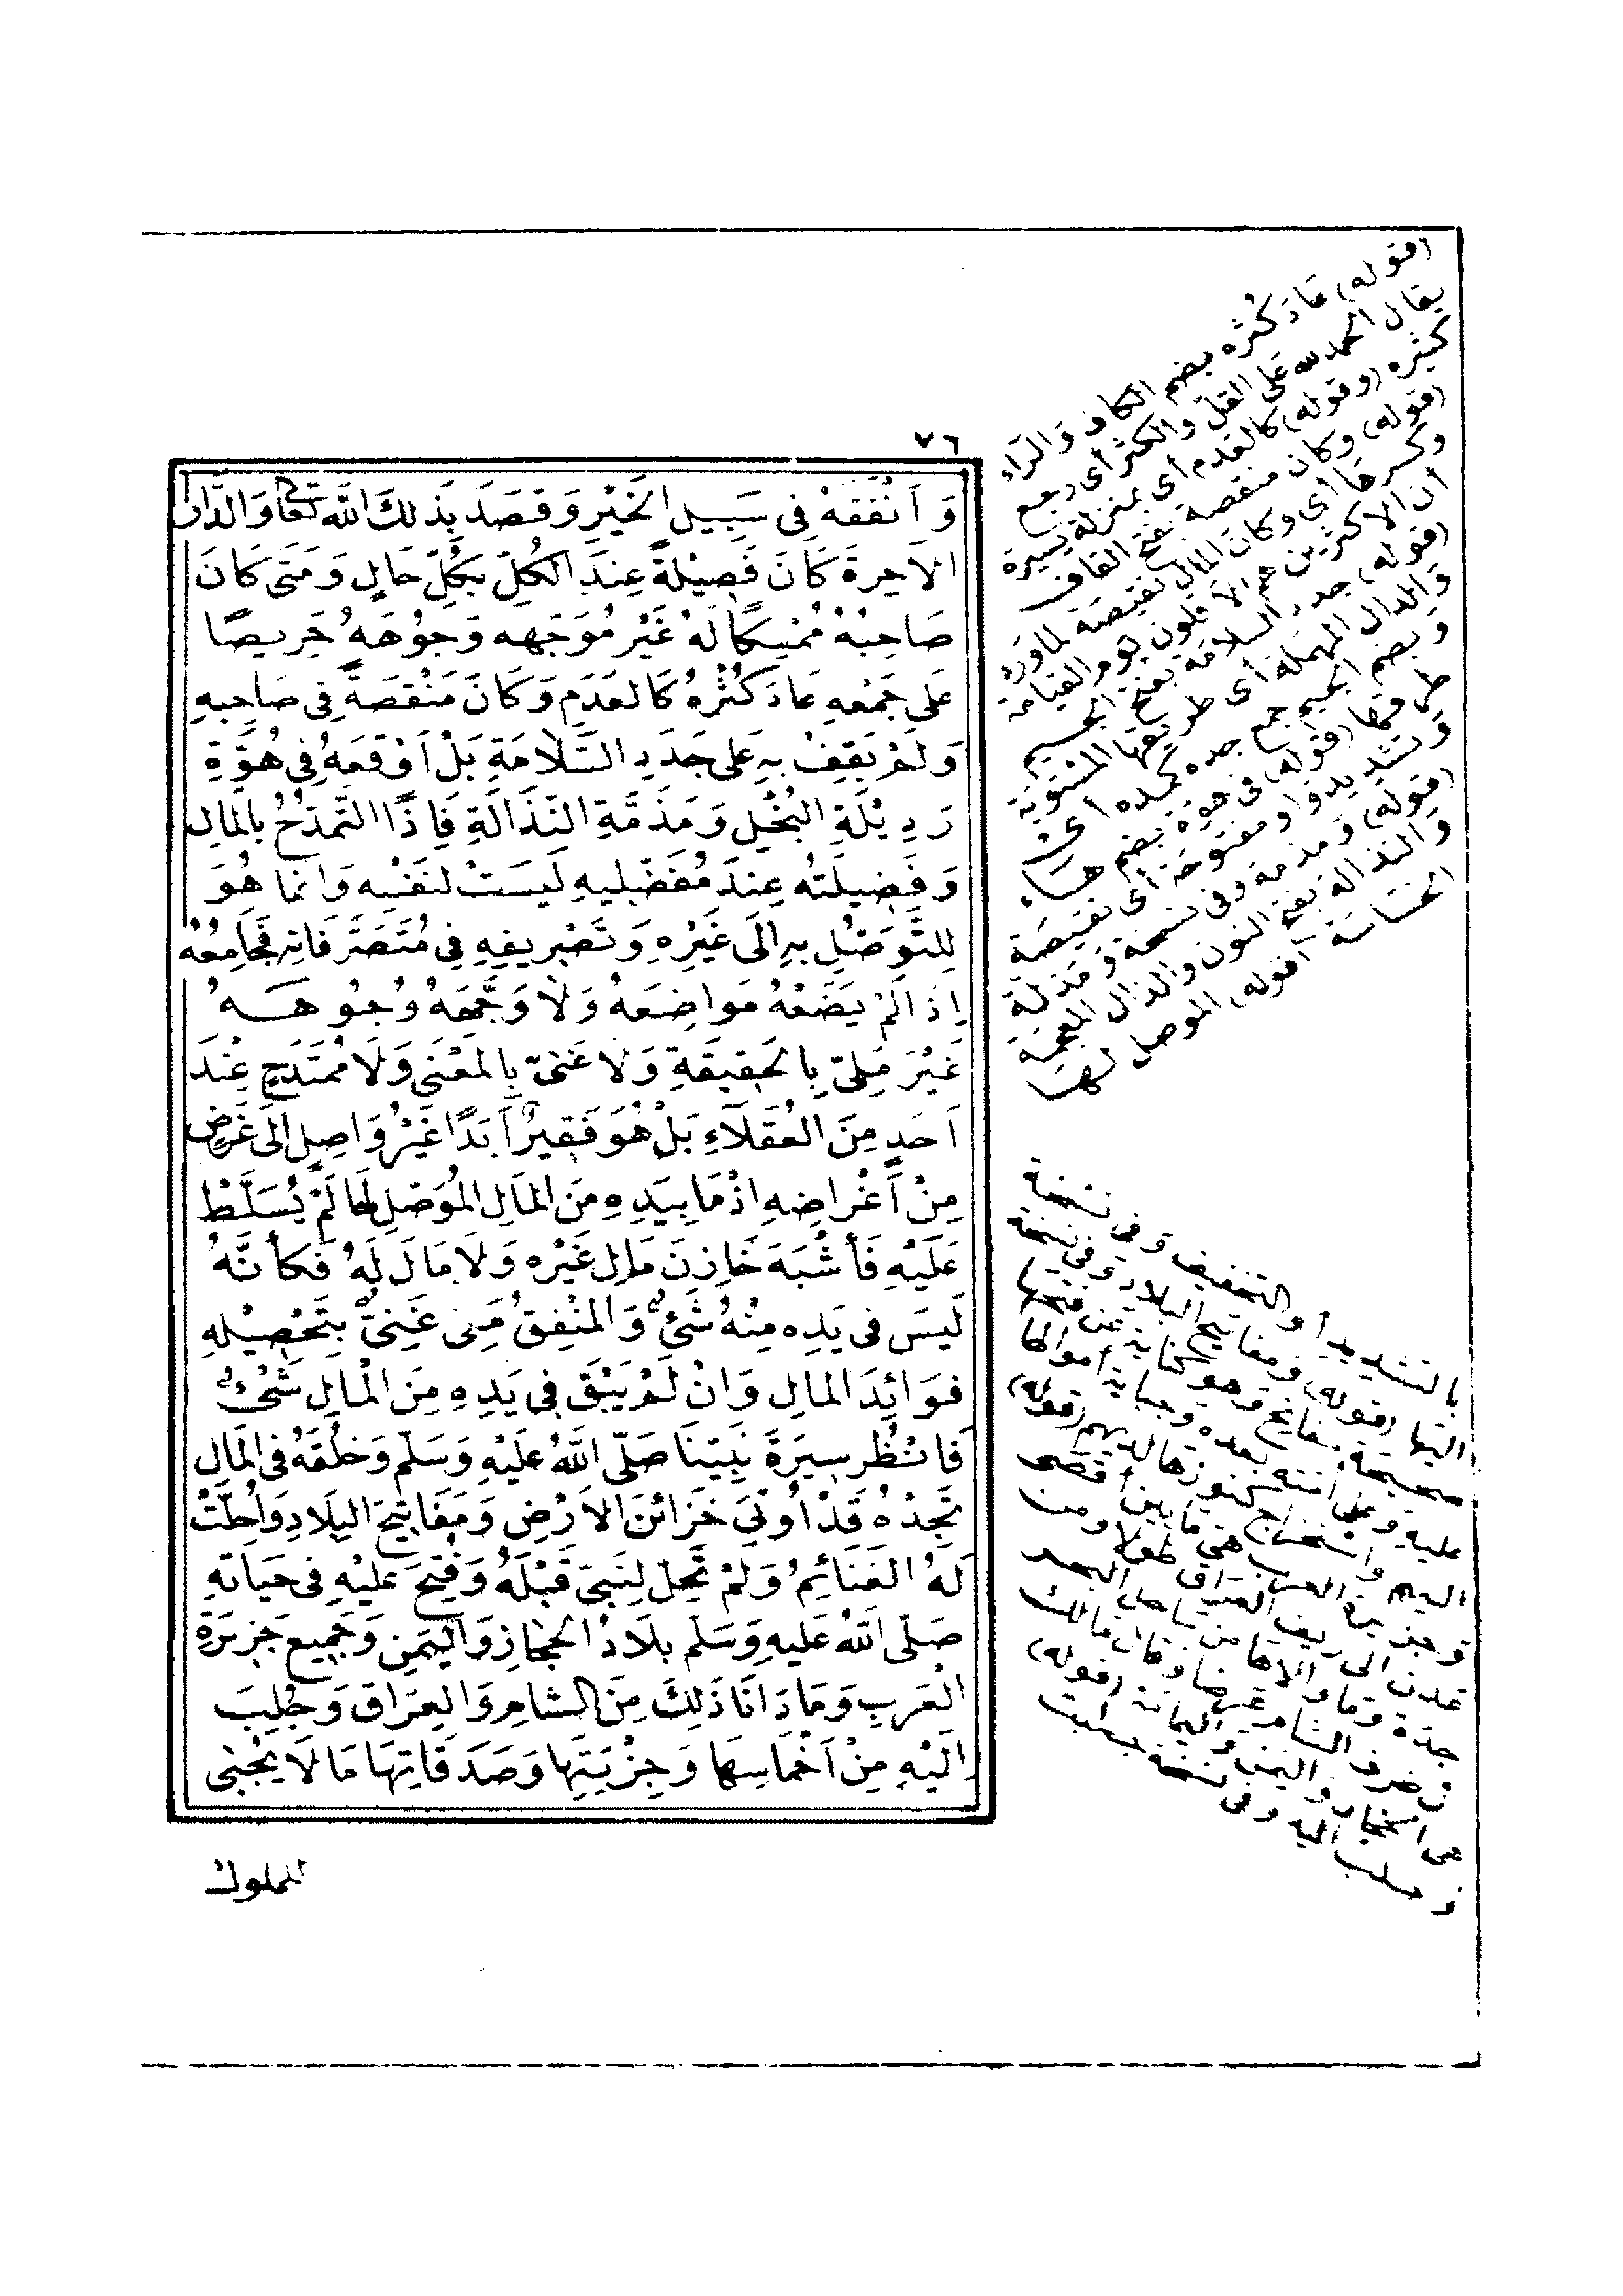 ٧٦
وَأَنْفَقَهُ فِى سَبِيلِ الْخَيْرِ وَقَصَدَ بِذٰلِكَ اللّٰهَ تَعَالَى وَالدَّارَ
الْاٰخِرَةَ كَانَ فَضِيْلَةً عِنْدَ الْكُلِّ بِكُلِّ حَالٍ وَمَتَى كَانَ
صَاحِبُهُ مُمْسِكًا لَهُ غَيْرَ مُوَجِّهِهِ وُجُوْهَهُ حَرِيصًا
عَلَى جَمْعِهِ عَادَ كُثْرُهُ كَالْعَدَمِ وَكَانَ مَنْقَصَةً فِى صَاحِبِهِ
وَلَمْ يَقِفْ بِهِ عَلَى جَدَدِ السَّلَامَةِ بَلْ أَوْقَعَهُ فِى هُوَّةِ
رَذِيْلَةِ الْبُخْلِ وَمَذَمَّةِ النَّذَالَةِ فَإِذًا التَّمَدُّحُ بِالْمَالِ
وَفَضِيلَتُهُ عِنْدَ مُفَضِّلِيهِ لَيْسَتْ لِنَفْسِهِ وَإِنَّمَا هُوَ
لِلتَّوَصُّلِ بِهِ إِلَى غَيْرِهِ وَتَصْرِيفِهِ فِى مُتَصَرَّفَاتِهِ فَجَامِعُهُ
إِذَا لَمْ يَضَعْهُ مَوَاضِعَهُ وَلَا وَجَّهَهُ وُجُوهَهُ
غَيْرُ مَلِىّ بِالْحَقِيقَةِ وَلَا غَنِىّ بِالْمَعْنَى وَلَا مُمْتَدَحٍ عِنْدَ
أَحَدٍ مِنَ الْعُقَلَاءِ بَلْ هُوَ فَقِيرٌ أَبَدًا غَيْرُ وَاصِلٍ إِلَى غَرَضٍ
مِنْ أَغْرَاضِهِ إِذْ مَا بِيَدِهِ مِنَ الْمَالِ الْمُوصِلِ لَهَا لَمْ يُسَلَّطْ
عَلَيْهِ فَأَشْبَهَ خَازِنَ مَالِ غَيْرِهِ وَلَا مَالَ لَهُ فَكَأَنَّهُ
لَيْسَ فِى يَدِهِ مِنْهُ شَىْءٌ وَالْمُنْفِقُ مَلِىٌّ غَنِىٌّ بِتَحْصِيْلِهِ
فَوَائِدَ الْمَالِ وَإِنْ لَمْ يَبْقَ فِى يَدِهِ مِنَ الْمَالِ شَىْءٌ
فَانْظُرْ سِيرَةَ نَبِيِّنَا صَلَّى اللّٰهُ عَلَيْهِ وَسَلَّمَ وَخُلُقَهُ فِى الْمَالِ
تَجِدْهُ قَدْ أُوتِىَ خَزَائِنَ الْأَرْضِ وَمَفَاتِيحَ الْبِلَادِ وَأُحِلَّتْ
لَهُ الْغَنَائِمُ وَلَمْ تَحِلَّ لِنَبِىّ قَبْلَهُ وَفُتِحَ عَلَيْهِ فِى حَيَاتِهِ
صَلَّى اللّٰهُ عَلَيْهِ وَسَلَّمَ بِلَادُ الْحِجَازِ وَالْيَمَنِ وَجَمِيعُ جَزِيرَةِ
الْعَرَبِ وَمَا دَانَا ذَلِكَ مِنَ الشَّامِ وَالْعِرَاقِ وَجُلِبَ
إِلَيْهِ مِنْ أَخْمَاسِهَا وَجِزْيَتِهَا وَصَدَقَاتِهَا مَا لَا يُجْبٰى
للملوك
(قوله) عاد كُثْره بضم الكاف والراء
يقال الحمد لله على القل والكثر أى رجع
كثيره (وقوله) كالعدم أى بمنزلة يسيرة
(قوله) وكان منقصة بفتح القاف
وكسرها أى وكان المال نقيصة لما ورد
أن الأكثرين هم الأقلون يوم القيامة
(قوله) جدد السلامة بفتح الجيم
والدال المهملة أى طريقها المستوية
وبضم الجيم جمع جدة كمدة أى
طرقها (قوله) فى هوة بضم هاء
وتشديد واو مفتوحة أى نقيصة
(قوله) ومذمة وفى نسخة ومذلة
والنذالة بفتح النون والذال المعجمة
الخساسة (قوله) الموصل لها
بالتشديد أو التخفيف وفى نسخة
اليها (قوله) ومفاتيح البلاد وفى نسخة
صحيحة مفاتح وهو كناية عن فتحها
عليه وعلى أمته بعده وجباية أموالها
اليهم واستخراج كنوزها لديهم (قوله)
وجزيرة العرب هى ما بين أقصى
عدن الى ريف العراق طولا ومن
جدة وما والاها من ساحل البحر